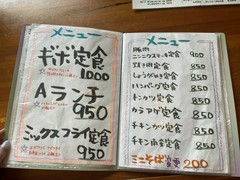 メニュー
ギボ定食
1000
Aランチ
950
ミックスフライ定食
950
メニュー
豚肉
ニンニクステーキ定食 900
焼き肉定食 850
しょうが焼き定食 850
ハンバーグ定食 850
トンカツ定食 850
カラアゲ定食 850
チキンカツ定食 850
チキン南定食 850
ミニそば変更 200